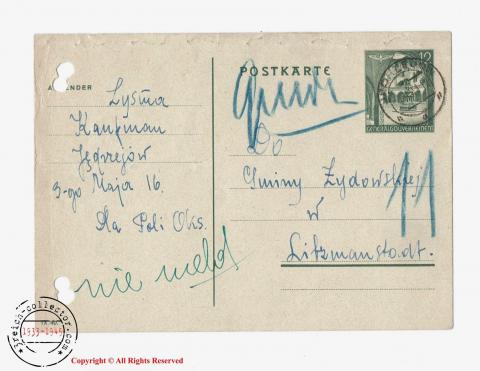 POSTKARTE
12
GENERALGOUVERNEMENT
Kaufman
Jędrzejów
3-go Maja 16.
Dla Poli Oks.
nie meld
Do
Gminy Żydowskiej
w
Litzmanstadt.
11
3reich-collector.com
1933-1945
Copyright © All Rights Reserved